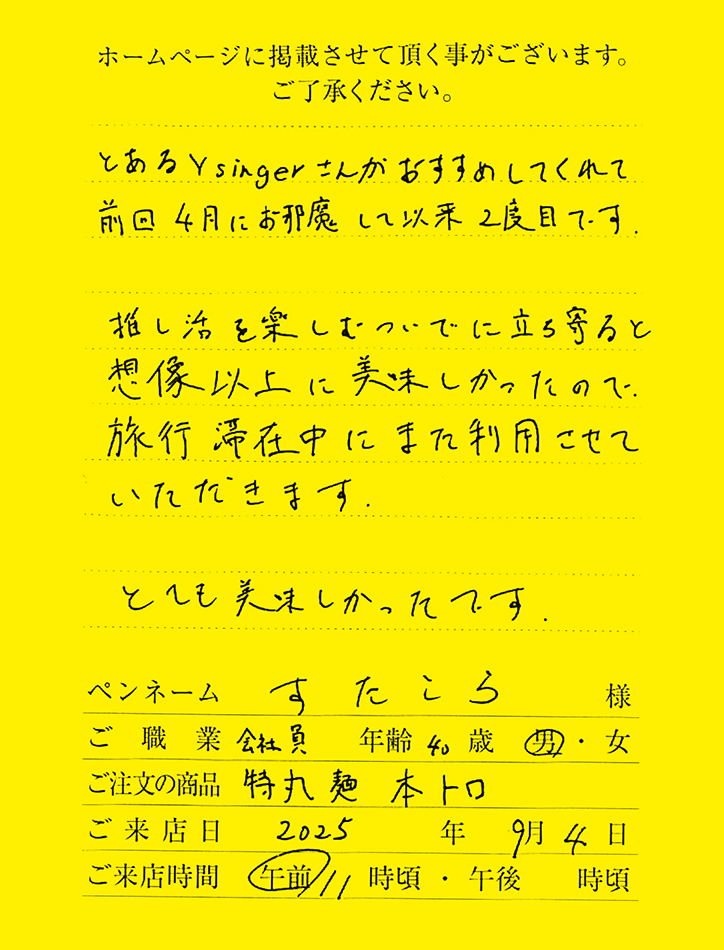 ホームページに掲載させて頂く事がございます。
ご了承ください。
とあるYsingerさんがおすすめしてくれて
前回 4月にお邪魔して以来 2度目です.
推し活を楽しむついでに立ち寄ると
想像以上に美味しかったので.
旅行滞在中にまた利用させて
いただきます.
とても美味しかったです.
ペンネーム すたころ 様
ご職業 会社員 年齢 40 歳 男・女
ご注文の商品 特丸麺 本トロ
ご来店日 2025 年 9月 4 日
ご来店時間 午前 11 時頃・午後 時頃